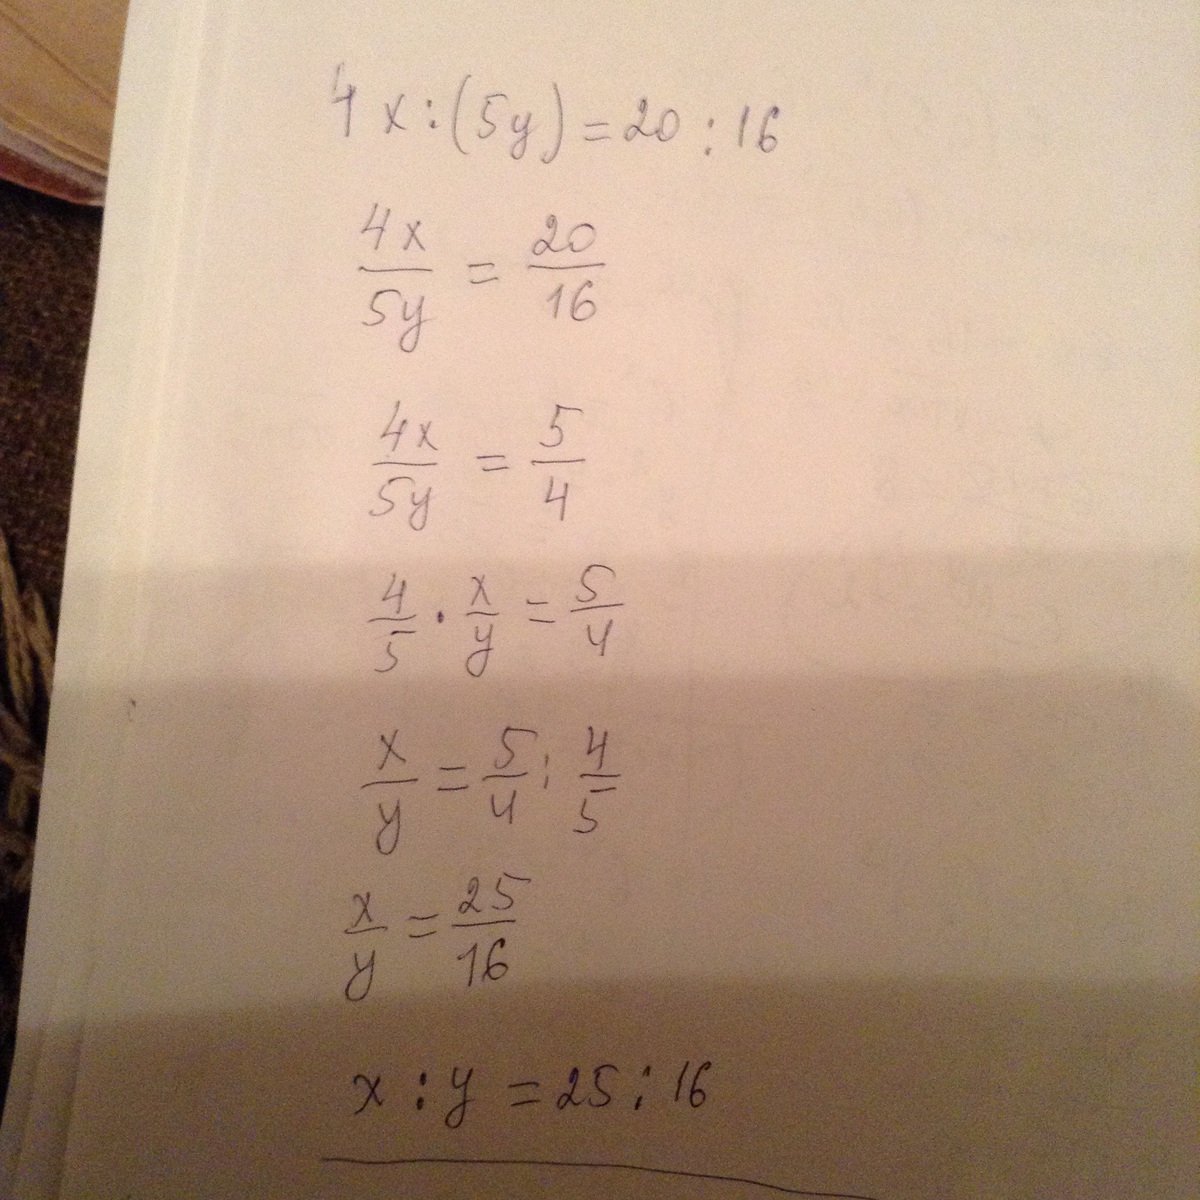 4x:(5y)=20:16
4x/5y = 20/16
4x/5y = 5/4
4/5 · x/y = 5/4
x/y = 5/4 : 4/5
x/y = 25/16
x:y=25:16